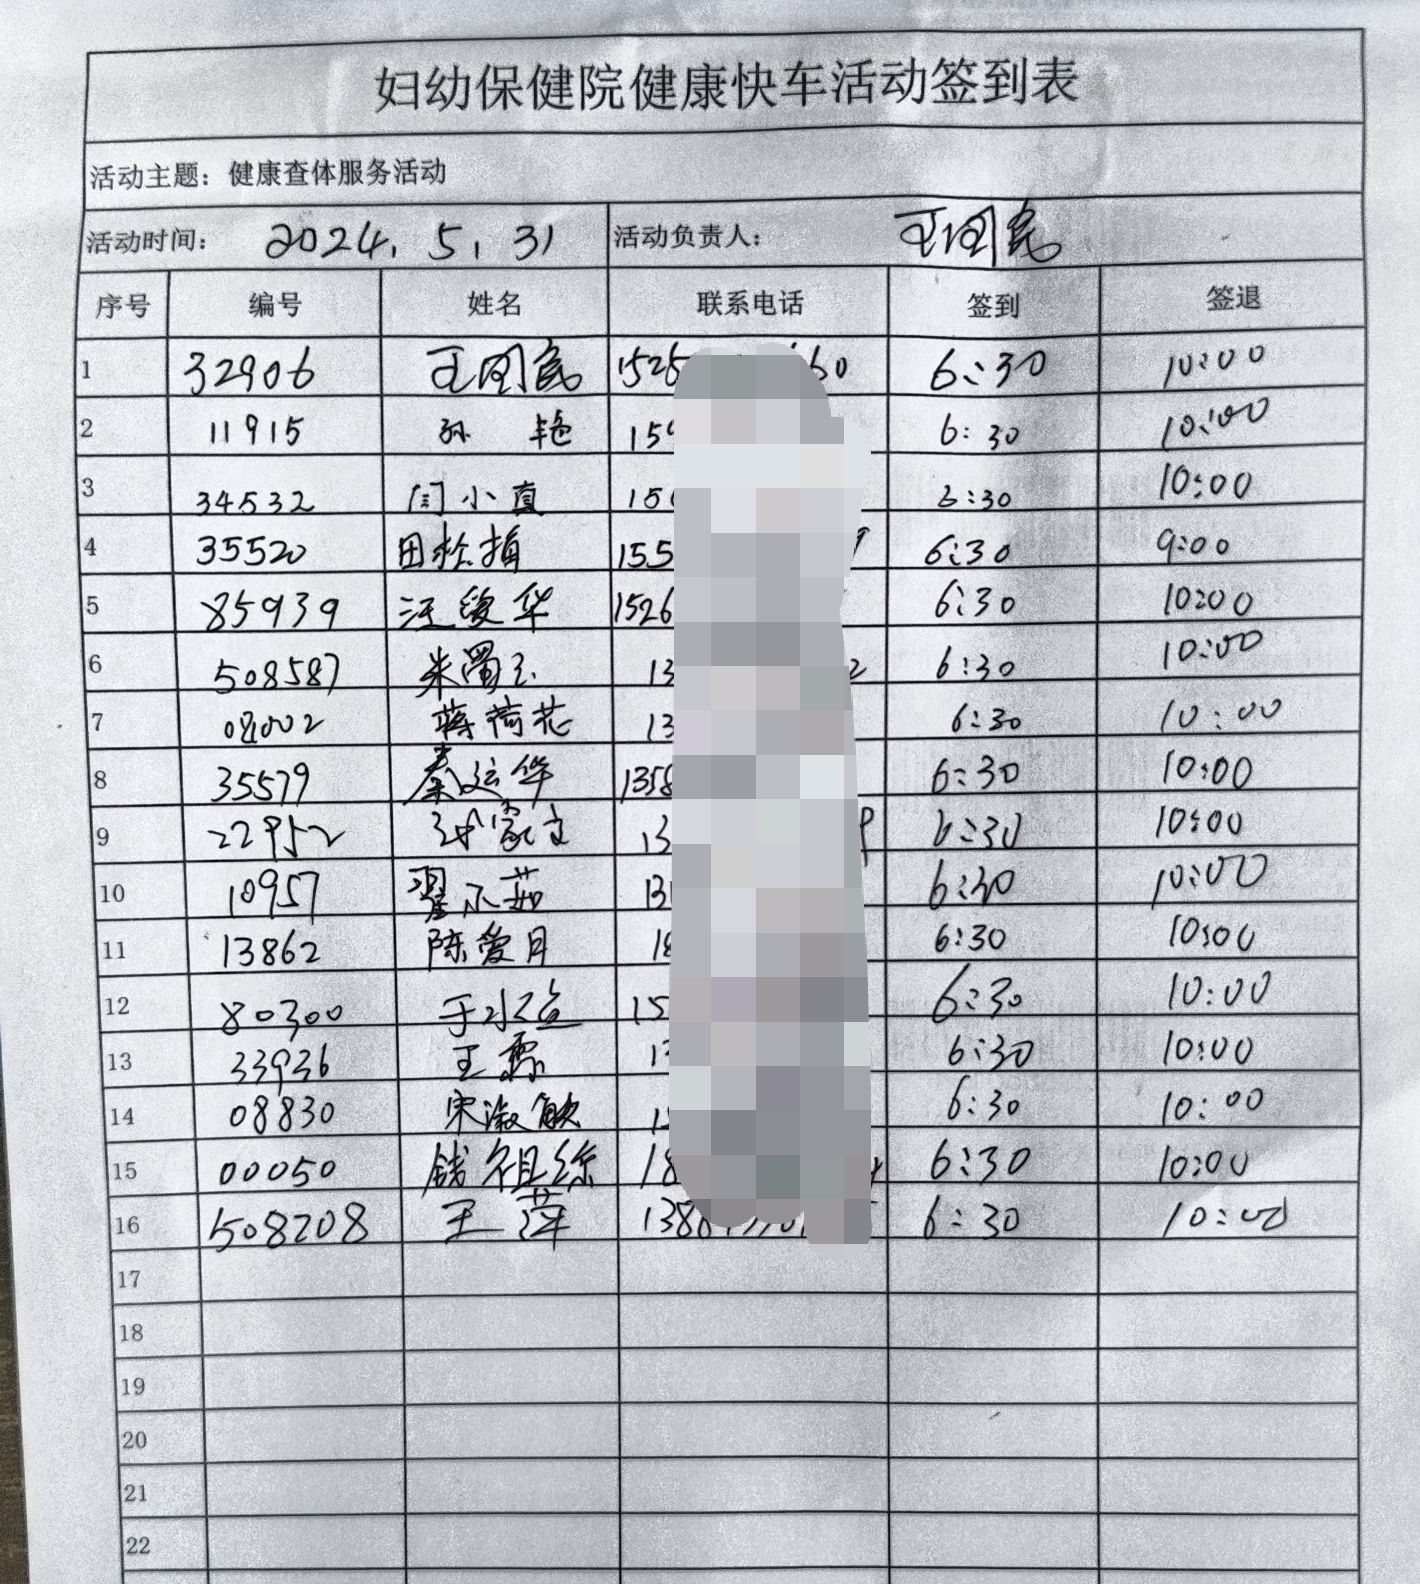 妇幼保健院健康快车活动签到表
活动主题：健康查体服务活动
活动时间： 2024.5.31 活动负责人： 王国民
序号 编号 姓名 联系电话 签到 签退
1 32906 王国民 152 60 6:30 10:00
2 11915 孙艳 15 6:30 10:00
3 34532 闫小真 15 6:30 10:00
4 35520 田 155 6:30 9:00
5 85939 汪俊华 1526 6:30 10:00
6 508587 朱 13 2 6:30 10:00
7 02 蒋荷花 13 6:30 10:00
8 35579 秦运华 1358 6:30 10:00
9 22952 家 13 6:30 10:00
10 10957 翟小茹 13 6:30 10:00
11 13862 陈爱月 18 6:30 10:00
12 80300 于水 15 6:30 10:00
13 33936 王霞 1 6:30 10:00
14 08830 宋淑敏 1 6:30 10:00
15 00050 钱祖 18 6:30 10:00
16 508208 王萍 138 6:30 10:00
17
18
19
20
21
22